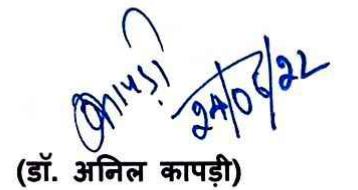 कापड़ी
24/06/22
(डॉ. अनिल कापड़ी)